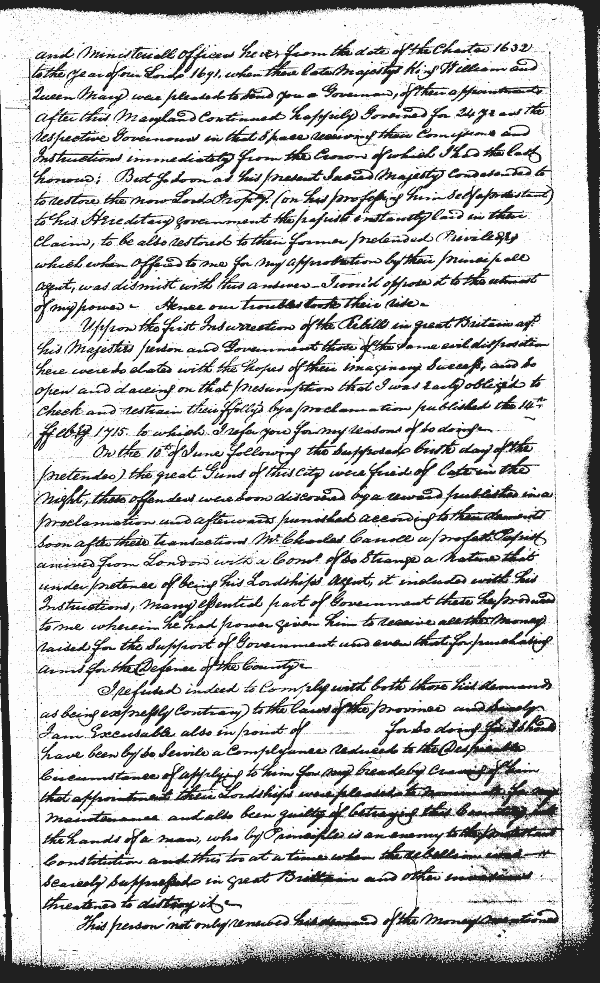 and Ministeriall Officers here; from the date of the Charter 1632
to the year of our Lord 1691, when there late Majestys King William and
Queen Mary were pleased to send you a Governor, of their appointment
After this Maryland Continued happily Governed for 24 years the
respective Governours in that Space receiving their Comissions and
Instructions immediately from the Crown of which I had the last
honour; But so soon as his present Sacred Majesty Condescended to
to restore the now Lord Propry. (on his professing himself a protestant)
to his Hereditary government the papists instantly laid in their
Claim, to be also restored to their former pretended Priviledges
which when offered to me for my approbation by their principall
agent, was dismist with this answer - I wou'd oppose it to the utmost
of my power - Hence our troubles took their rise -
Uppon the first Insurrection of the Rebills in great Brittain agt.
his Majesties person and Government those of the same evil disposition
here were so elated with the hopes of their imaginary Success, and so
open and dareing on that presumption that I was early obliged to
check and restrain their folly by a proclamation published the 14th
ffebry 1715. to which I refer you for my reasons of so doing -
On the 10th of June following the Supposed birth day of the
pretender) the great Guns of this City were fired of Late in the
night, these offenders were soon discovered by a reward publisht in a
proclamation and afterwards punished according to their demerits
Soon after these transactions Mr. Charles Carroll a profest Papist
arrived from London with a Comn. of so Strange a nature that
under pretence of being his Lordships Agent, it included with his
Instructions, many essential part of Government these he produced
to me wherein he had power given him to receive all the Money
raised for the Support of Government and even that for purchasing
arms for the Defence of the County -
I refused indeed to Comply with both those his demands
as being expressly Contrary to the laws of the province and Surely
I am Excusable also in point of for so doing for I should
have been by so Servile a Complyance reduced to the Despicable
Circumstance of applying to him for my bread by craving of him
that appointment their Lordships were pleased to for my
maintenance and also been guilty of betraying this Country into
the hands of a man, who by Principle is an enemy to the protestant
Constitution and this too at a time when the rebellion was
Scarcely Suppressed in great Brittain and other invasions
threatened to distroy it -
This person not only renewed his demand of the Money mentioned